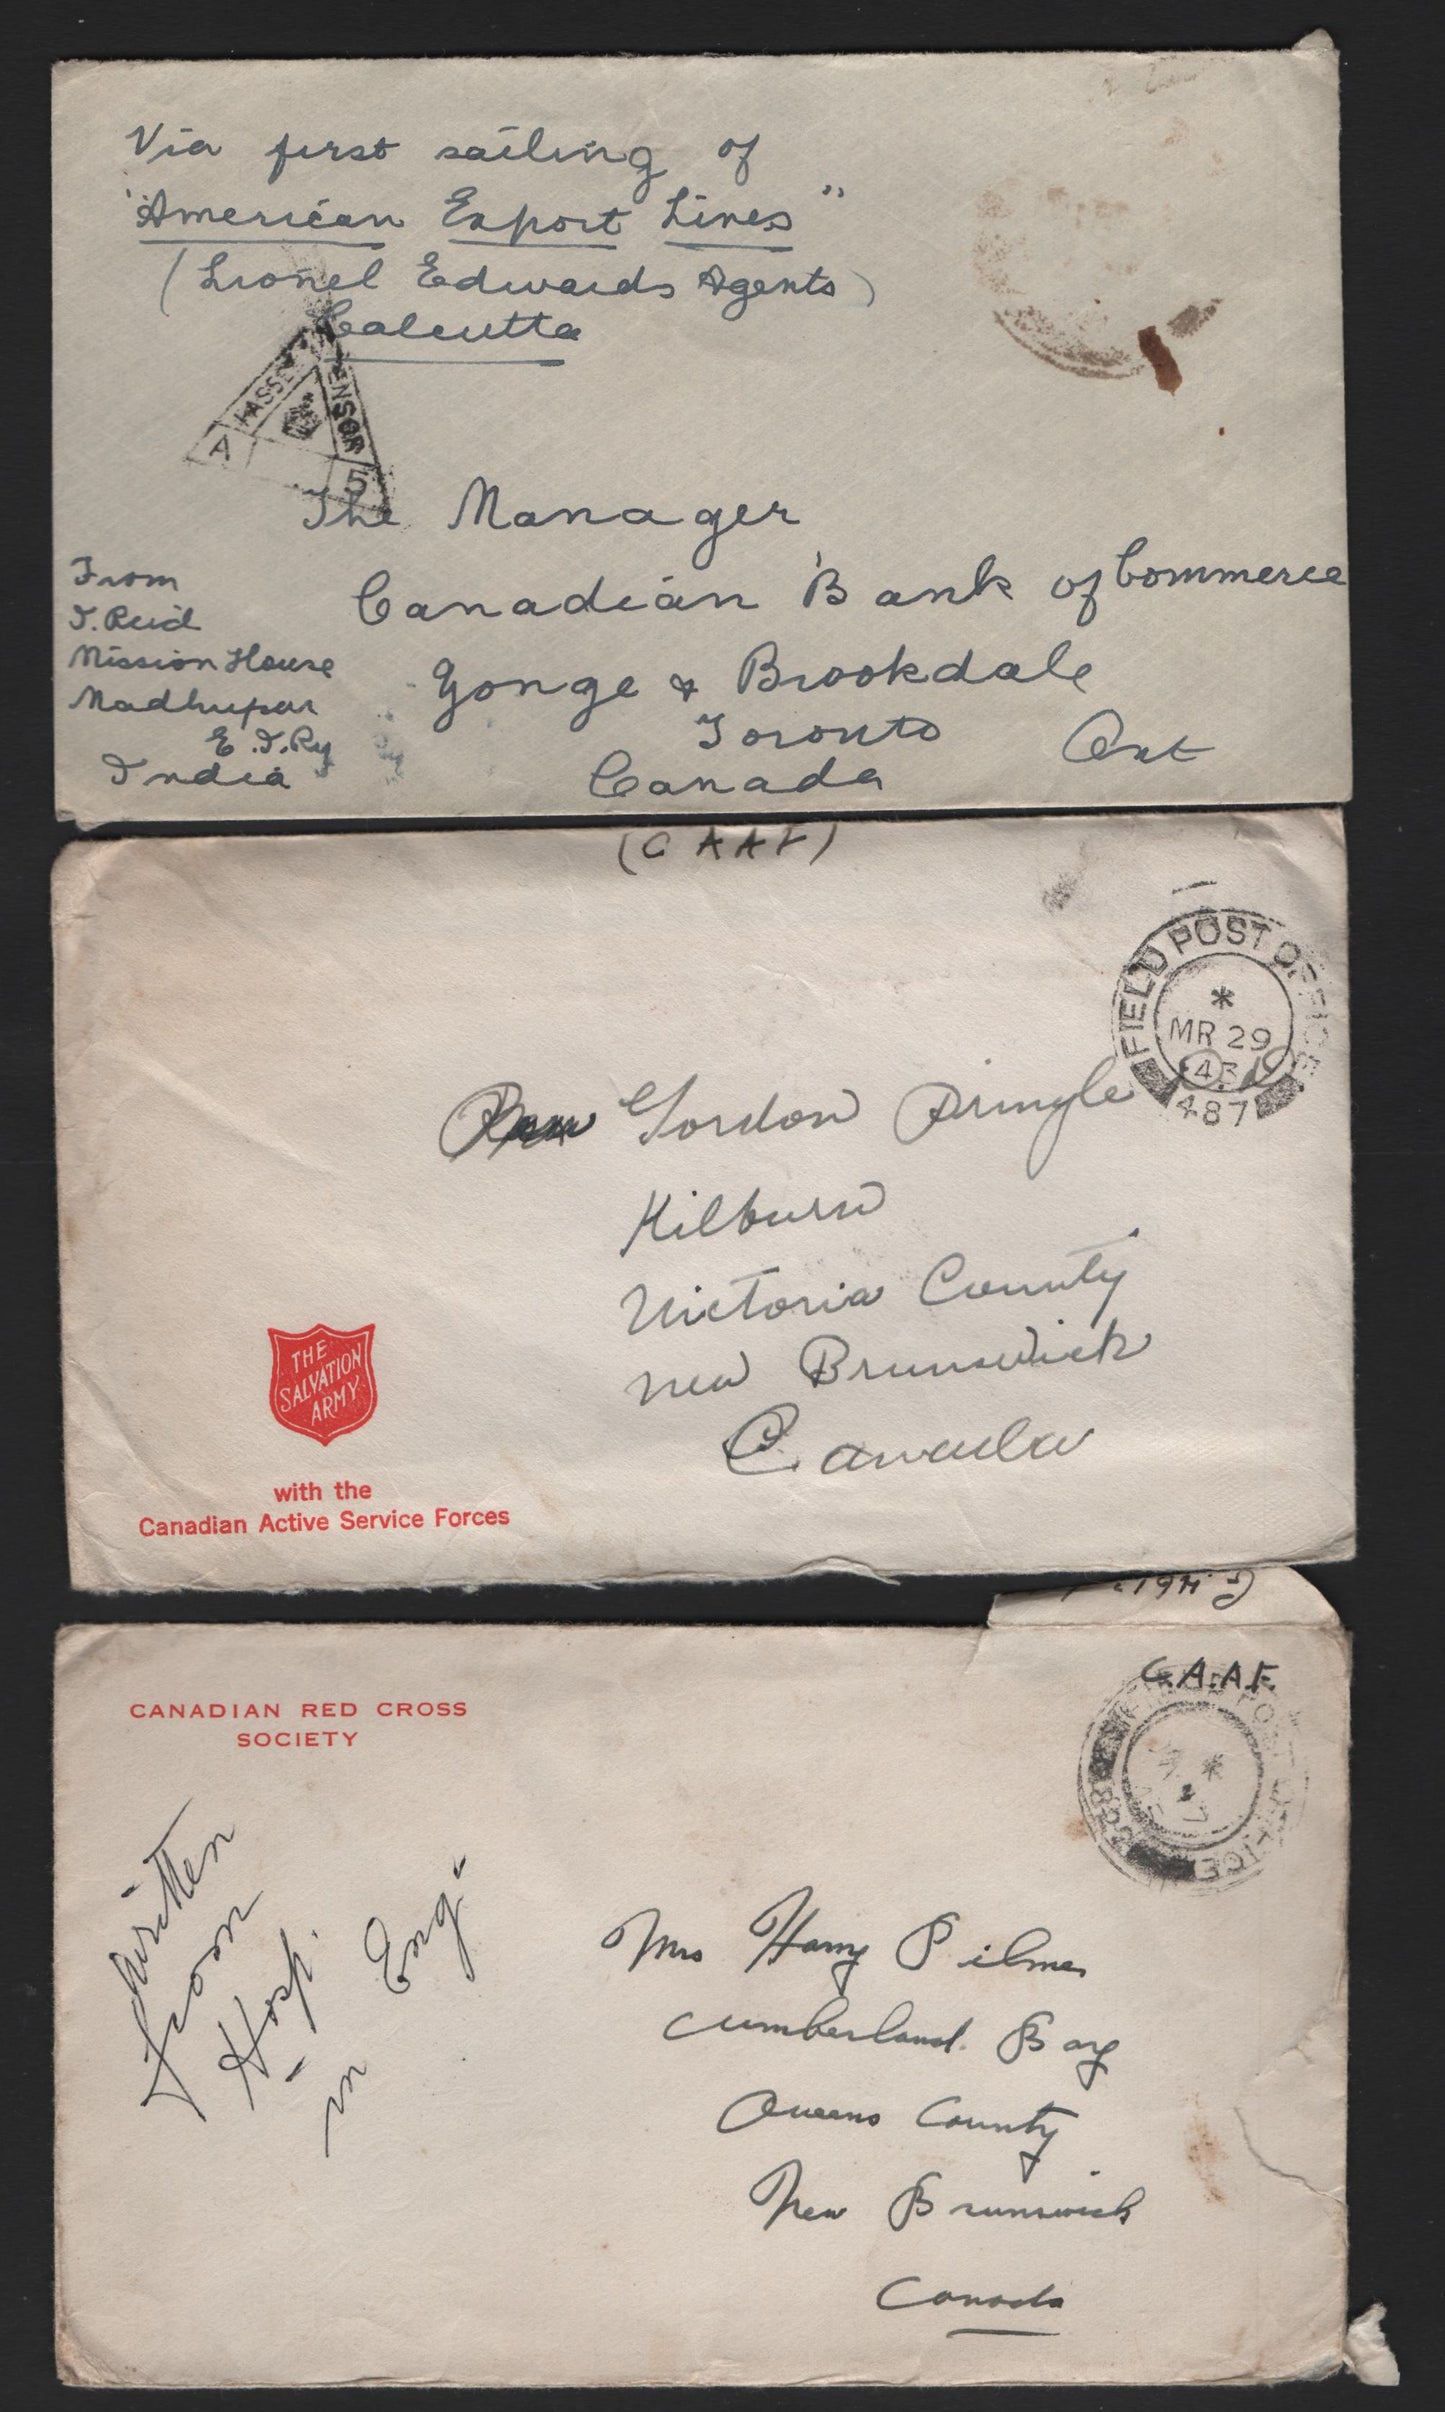 Via first sailing of
"American Export Lines"
(Lionel Edwards Agents)
Calcutta
PASSED CENSOR
A 5
The Manager
Canadian Bank of Commerce
Yonge & Brookdale
Toronto Ont
Canada
From
T. Reid
Mission House
Madhupur
E.I.Ry
India
(C A A F)
FIELD POST OFFICE
*
MR 29
43
487
Gordon Pringle
Kilburn
Victoria County
New Brunswick
Canada
THE
SALVATION
ARMY
with the
Canadian Active Service Forces
C.A.A.F.
CANADIAN RED CROSS
SOCIETY
Written
from
Hosp.
in Eng.
Mrs Harry
Cumberland Bay
Queens County
New Brunswick
Canada